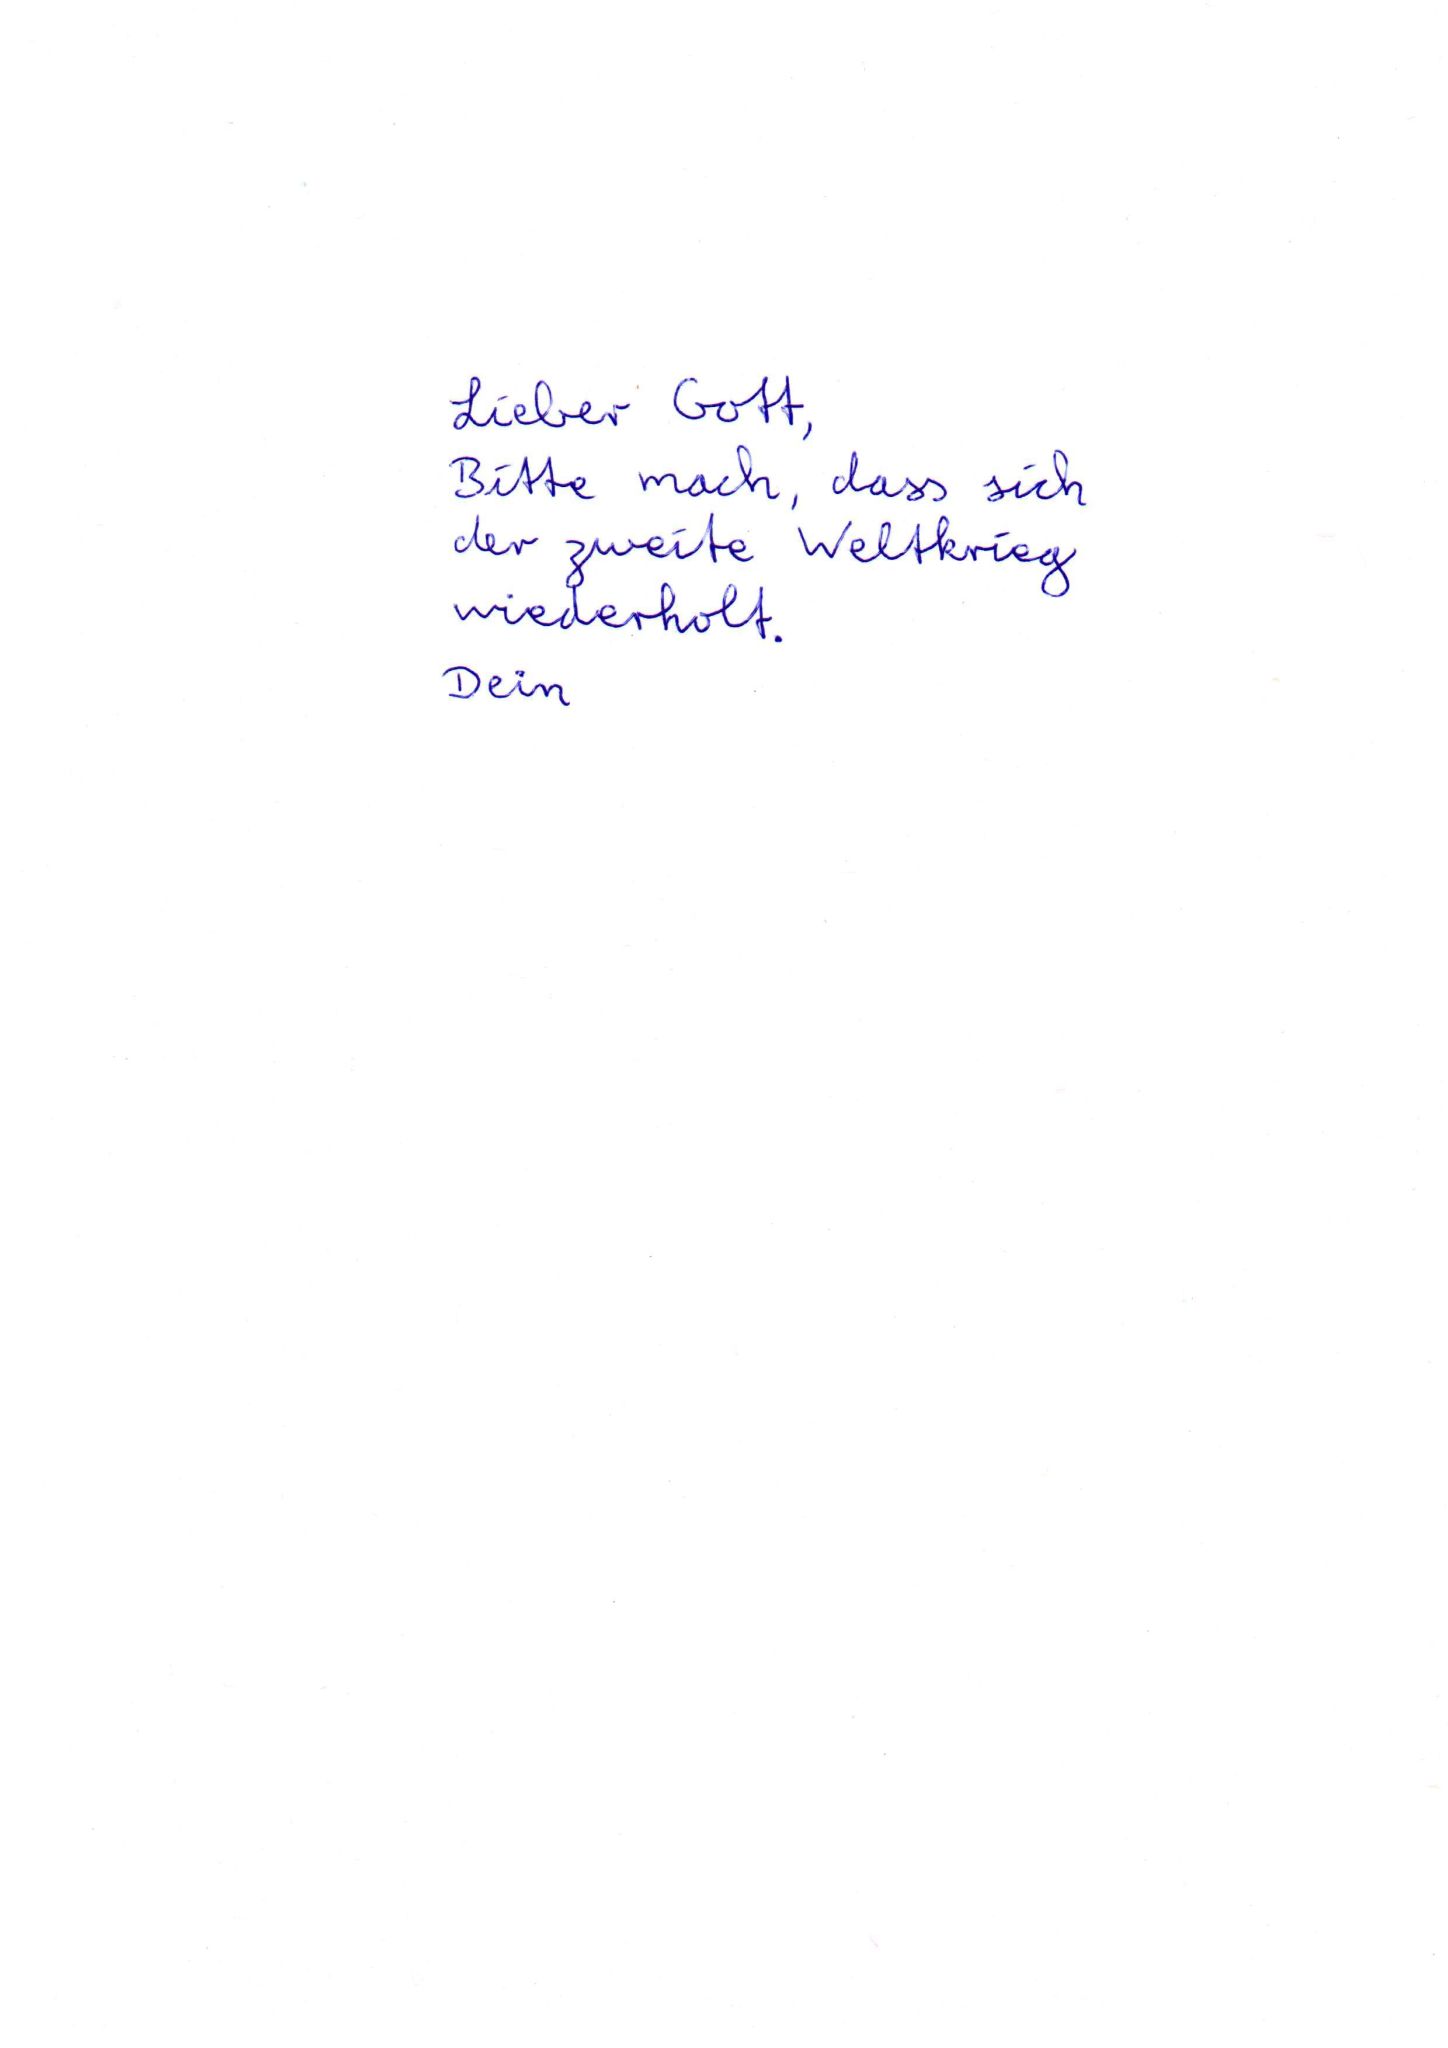 Lieber Gott,
Bitte mach, dass sich
der zweite Weltkrieg
wiederholt.
Dein